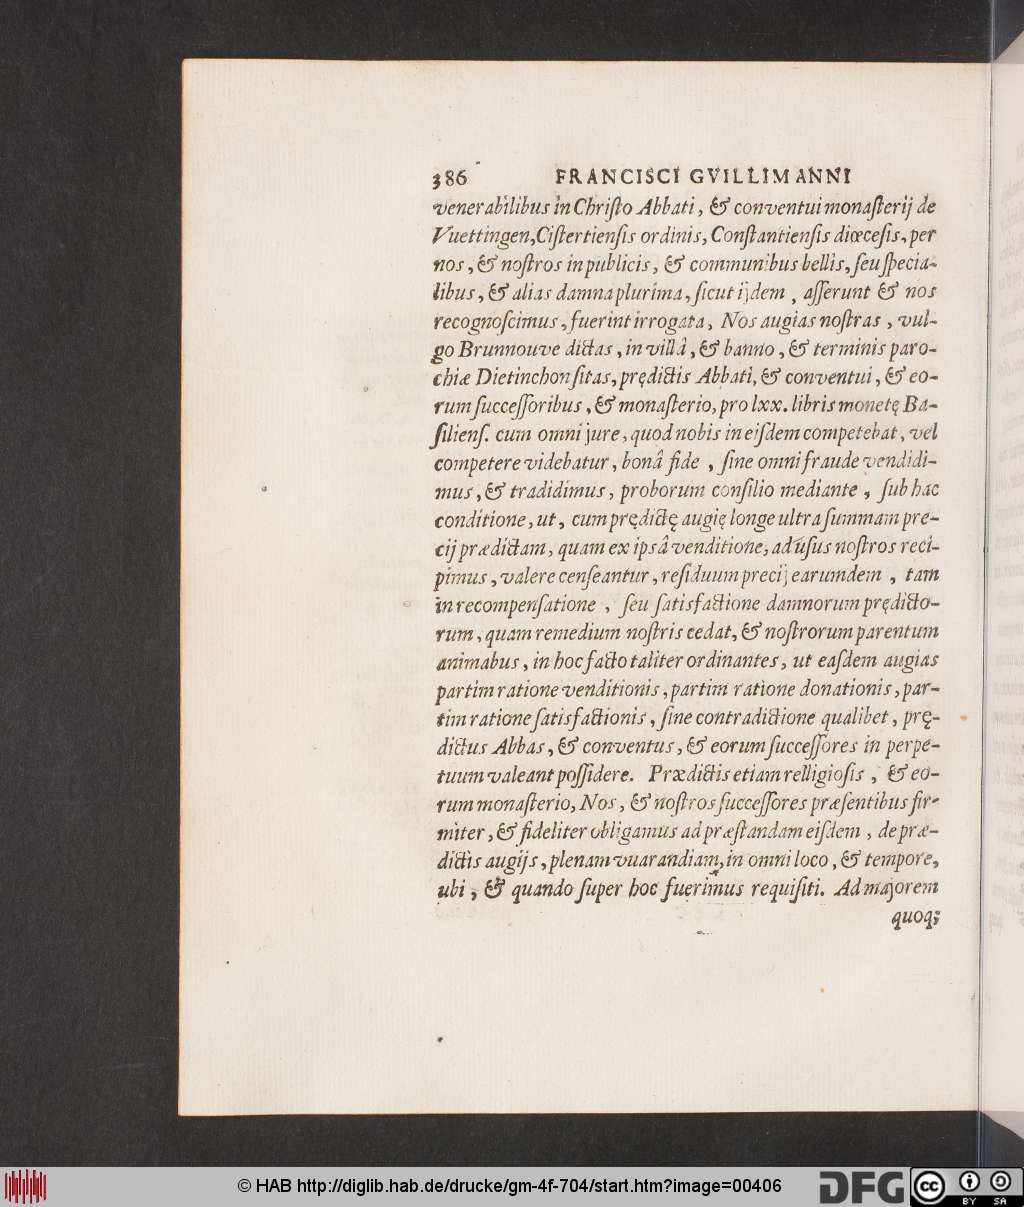 386 FRANCISCI GVILLIMANNI
venerabilibus in Chriſto Abbati, & conventui monaſterij de
Vuettingen, Ciſtertienſis ordinis, Conſtantienſis diœceſis, per
nos, & noſtros in publicis, & communibus bellis, ſeu ſpecia-
libus, & alias damna plurima, ſicut ijdem, aſſerunt & nos
recognoſcimus, fuerint irrogata, Nos augias noſtras, vul-
go Brunnouve dictas, in villâ, & banno, & terminis paro-
chiæ Dietinchon ſitas, prędictis Abbati, & conventui, & eo-
rum ſucceſſoribus, & monaſterio, pro lxx. libris monetę Ba-
ſilienſ. cum omni jure, quod nobis in eiſdem competebat, vel
competere videbatur, bonâ fide, ſine omni fraude vendidi-
mus, & tradidimus, proborum conſilio mediante, ſub hac
conditione, ut, cum prędictę augię longe ultra ſummam pre-
cij prædictam, quam ex ipsâ venditione, ad uſus noſtros reci-
pimus, valere cenſeantur, reſiduum precij earumdem, tam
in recompenſatione, ſeu ſatisfactione damnorum prędicto-
rum, quam remedium noſtris cedat, & noſtrorum parentum
animabus, in hoc facto taliter ordinantes, ut eaſdem augias
partim ratione venditionis, partim ratione donationis, par-
tim ratione ſatisfactionis, ſine contradictione qualibet, prę-
dictus Abbas, & conventus, & eorum ſucceſſores in perpe-
tuum valeant poſſidere. Prædictis etiam relligioſis, & eo-
rum monaſterio, Nos, & noſtros ſucceſſores præſentibus fir-
miter, & fideliter obligamus ad præſtandam eiſdem, de præ-
dictis augijs, plenam vuarandiam, in omni loco, & tempore,
ubi, & quando ſuper hoc fuerimus requiſiti. Ad majorem
quoq;
© HAB http://diglib.hab.de/drucke/gm-4f-704/start.htm?image=00406
DFG
cc BY SA